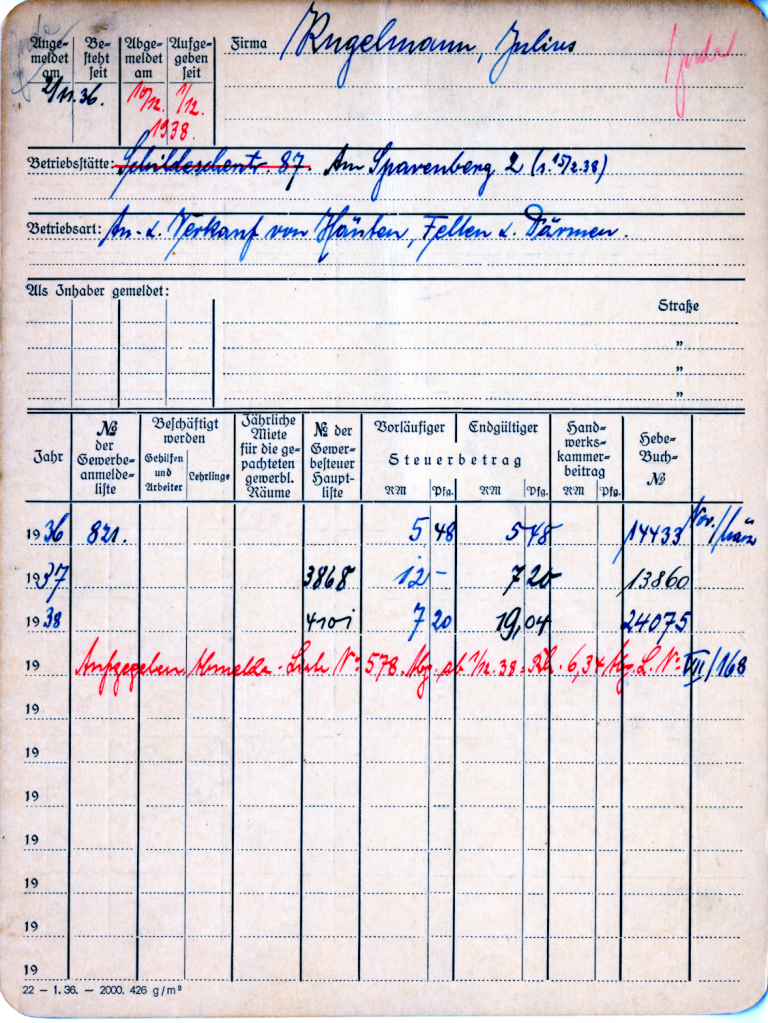 Ange- Be- Abge- Aufge- Firma Kugelmann, Julius
meldet steht meldet geben
am seit am seit
2/11.36. 10/12. 1/12.
1938.
Betriebsstätte: Schildeschestr. 87. Am Sparenberg 2 (s. 15/2.38)
Betriebsart: An- u. Verkauf von Häuten, Fellen u. Därmen.
Als Inhaber gemeldet:
Straße
"
"
"
Jahr № der Gewerbe-anmelde-liste Beschäftigt werden Gehilfen und Arbeiter Lehrlinge Jährliche Miete für die ge-pachteten gewerbl. Räume № der Gewer-besteuer Haupt-liste Vorläufiger Endgültiger Steuerbetrag RM Pfg. RM Pfg. Hand-werks-kammer-beitrag RM Pfg. Hebe-Buch-№
1936 821. 5 48 5 48 14433 Nov./März
1937 3868 12 - 7 20 13860
1938 4101 7 20 19,04 24075
19 Aufgegeben Abmelde-Liste № 578. Abg. ab 1/12.38. 6,34 Abg. L. № VIII/168
19
19
19
19
19
19
19
22 — 1. 36. — 2000. 426 g/m²